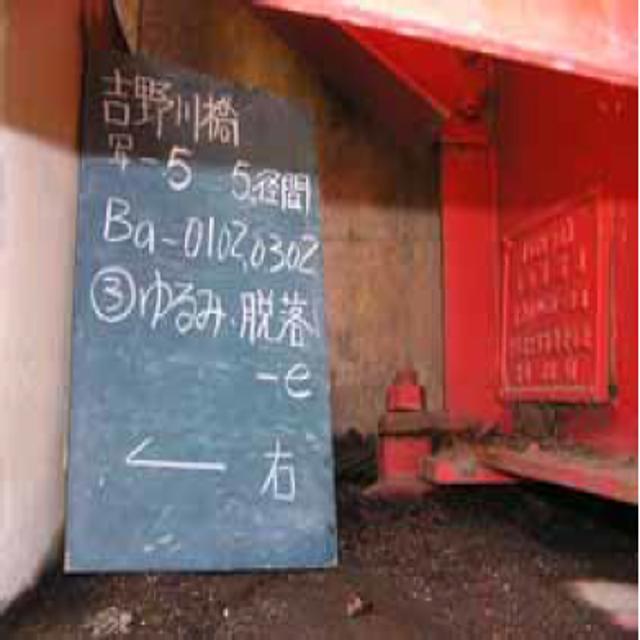 吉野川橋
写-5 5径間
Ba-0102,0302
③ゆるみ・脱落
-e
← 右